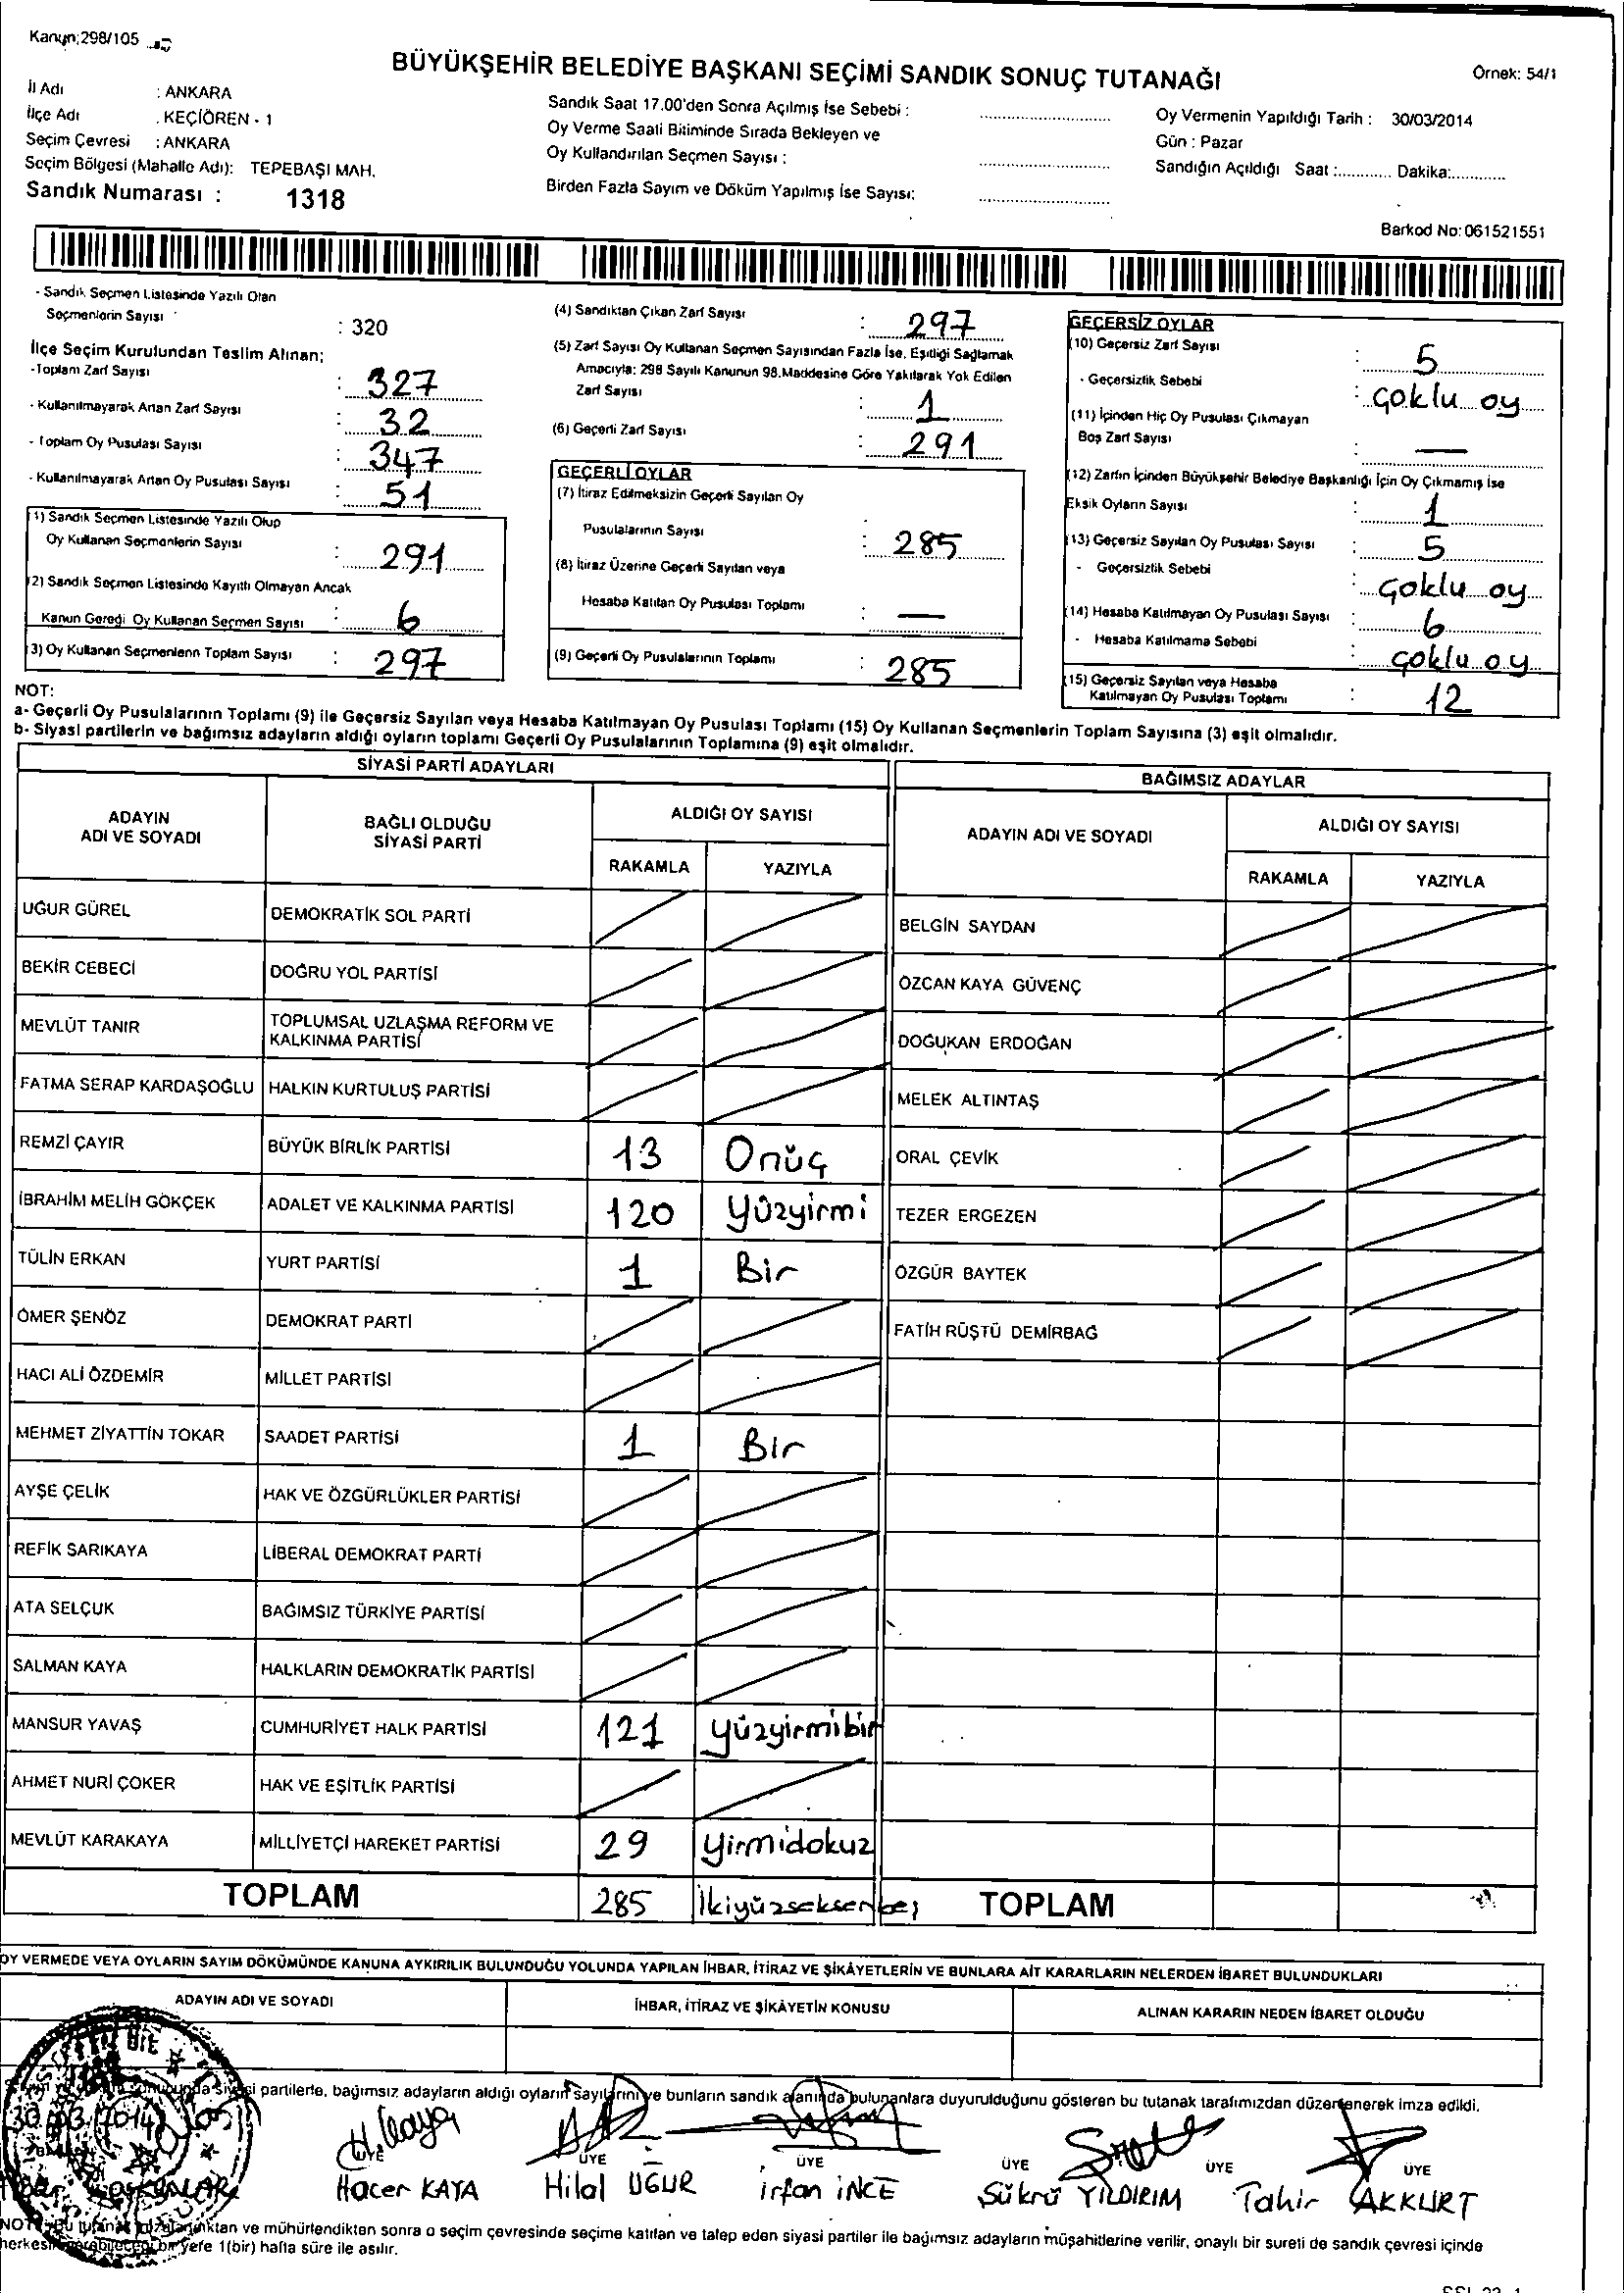 Kanun:298/105
BÜYÜKŞEHİR BELEDİYE BAŞKANI SEÇİMİ SANDIK SONUÇ TUTANAĞI
Örnek: 54/1
İl Adı : ANKARA
İlçe Adı : KEÇİÖREN - 1
Seçim Çevresi : ANKARA
Seçim Bölgesi (Mahalle Adı): TEPEBAŞI MAH.
Sandık Numarası : 1318
Sandık Saat 17.00'den Sonra Açılmış İse Sebebi :
Oy Verme Saati Bitiminde Sırada Bekleyen ve
Oy Kullandırılan Seçmen Sayısı :
Birden Fazla Sayım ve Döküm Yapılmış İse Sayısı:
Oy Vermenin Yapıldığı Tarih : 30/03/2014
Gün : Pazar
Sandığın Açıldığı Saat :............ Dakika:............
Barkod No: 061521551
- Sandık Seçmen Listesinde Yazılı Olan
Seçmenlerin Sayısı : 320
İlçe Seçim Kurulundan Teslim Alınan;
-Toplam Zarf Sayısı : 327
- Kullanılmayarak Artan Zarf Sayısı : 32
- Toplam Oy Pusulası Sayısı : 347
- Kullanılmayarak Artan Oy Pusulası Sayısı : 51
(1) Sandık Seçmen Listesinde Yazılı Olup
Oy Kullanan Seçmenlerin Sayısı : 291
(2) Sandık Seçmen Listesinde Kayıtlı Olmayan Ancak
Kanun Gereği Oy Kullanan Seçmen Sayısı : 6
(3) Oy Kullanan Seçmenlerin Toplam Sayısı : 297
(4) Sandıktan Çıkan Zarf Sayısı : 297
(5) Zarf Sayısı Oy Kullanan Seçmen Sayısından Fazla İse, Eşitliği Sağlamak
Amacıyla: 298 Sayılı Kanunun 98.Maddesine Göre Yakılarak Yok Edilen
Zarf Sayısı : 1
(6) Geçerli Zarf Sayısı : 291
GEÇERLİ OYLAR
(7) İtiraz Edilmeksizin Geçerli Sayılan Oy
Pusulalarının Sayısı : 285
(8) İtiraz Üzerine Geçerli Sayılan veya
Hesaba Katılan Oy Pusulası Toplamı : —
(9) Geçerli Oy Pusulalarının Toplamı : 285
GEÇERSİZ OYLAR
(10) Geçersiz Zarf Sayısı : 5
- Geçersizlik Sebebi : Çoklu oy
(11) İçinden Hiç Oy Pusulası Çıkmayan
Boş Zarf Sayısı : —
(12) Zarfın İçinden Büyükşehir Belediye Başkanlığı İçin Oy Çıkmamış İse
Eksik Oyların Sayısı : 1
(13) Geçersiz Sayılan Oy Pusulası Sayısı : 5
- Geçersizlik Sebebi : Çoklu oy
(14) Hesaba Katılmayan Oy Pusulası Sayısı : 6
- Hesaba Katılmama Sebebi : çoklu oy
(15) Geçersiz Sayılan veya Hesaba
Katılmayan Oy Pusulası Toplamı : 12
NOT:
a- Geçerli Oy Pusulalarının Toplamı (9) ile Geçersiz Sayılan veya Hesaba Katılmayan Oy Pusulası Toplamı (15) Oy Kullanan Seçmenlerin Toplam Sayısına (3) eşit olmalıdır.
b- Siyasi partilerin ve bağımsız adayların aldığı oyların toplamı Geçerli Oy Pusulalarının Toplamına (9) eşit olmalıdır.
SİYASİ PARTİ ADAYLARI
ADAYIN ADI VE SOYADI
BAĞLI OLDUĞU SİYASİ PARTİ
ALDIĞI OY SAYISI
RAKAMLA YAZIYLA
UĞUR GÜREL DEMOKRATİK SOL PARTİ
BEKİR CEBECİ DOĞRU YOL PARTİSİ
MEVLÜT TANIR TOPLUMSAL UZLAŞMA REFORM VE KALKINMA PARTİSİ
FATMA SERAP KARDAŞOĞLU HALKIN KURTULUŞ PARTİSİ
REMZİ ÇAYIR BÜYÜK BİRLİK PARTİSİ 13 Onüç
İBRAHİM MELİH GÖKÇEK ADALET VE KALKINMA PARTİSİ 120 Yüzyirmi
TÜLİN ERKAN YURT PARTİSİ 1 Bir
ÖMER ŞENÖZ DEMOKRAT PARTİ
HACI ALİ ÖZDEMİR MİLLET PARTİSİ
MEHMET ZİYATTİN TOKAR SAADET PARTİSİ 1 Bir
AYŞE ÇELİK HAK VE ÖZGÜRLÜKLER PARTİSİ
REFİK SARIKAYA LİBERAL DEMOKRAT PARTİ
ATA SELÇUK BAĞIMSIZ TÜRKİYE PARTİSİ
SALMAN KAYA HALKLARIN DEMOKRATİK PARTİSİ
MANSUR YAVAŞ CUMHURİYET HALK PARTİSİ 121 Yüzyirmibir
AHMET NURİ ÇOKER HAK VE EŞİTLİK PARTİSİ
MEVLÜT KARAKAYA MİLLİYETÇİ HAREKET PARTİSİ 29 Yirmidokuz
TOPLAM 285 İkiyüzseksenbeş
BAĞIMSIZ ADAYLAR
ADAYIN ADI VE SOYADI
ALDIĞI OY SAYISI
RAKAMLA YAZIYLA
BELGİN SAYDAN
ÖZCAN KAYA GÜVENÇ
DOĞUKAN ERDOĞAN
MELEK ALTINTAŞ
ORAL ÇEVİK
TEZER ERGEZEN
ÖZGÜR BAYTEK
FATİH RÜŞTÜ DEMİRBAĞ
TOPLAM
OY VERMEDE VEYA OYLARIN SAYIM DÖKÜMÜNDE KANUNA AYKIRILIK BULUNDUĞU YOLUNDA YAPILAN İHBAR, İTİRAZ VE ŞİKÂYETLERİN VE BUNLARA AİT KARARLARIN NELERDEN İBARET BULUNDUKLARI
ADAYIN ADI VE SOYADI
İHBAR, İTİRAZ VE ŞİKÂYETİN KONUSU
ALINAN KARARIN NEDEN İBARET OLDUĞU
partilerle, bağımsız adayların aldığı oyların sayılarını ve bunların sandık alanında bulunanlara duyurulduğunu gösteren bu tutanak tarafımızdan düzenlenerek imza edildi.
30/03/2014
H.Kaya
ÜYE ÜYE ÜYE ÜYE ÜYE ÜYE
Hacer KAYA Hilal UĞUR İrfan İNCE Şükrü YILDIRIM Tahir AKKURT
NOT: Bu tutanak ve mühürlendikten sonra o seçim çevresinde seçime katılan ve talep eden siyasi partiler ile bağımsız adayların müşahitlerine verilir, onaylı bir sureti de sandık çevresi içinde
bir yere 1(bir) hafta süre ile asılır.